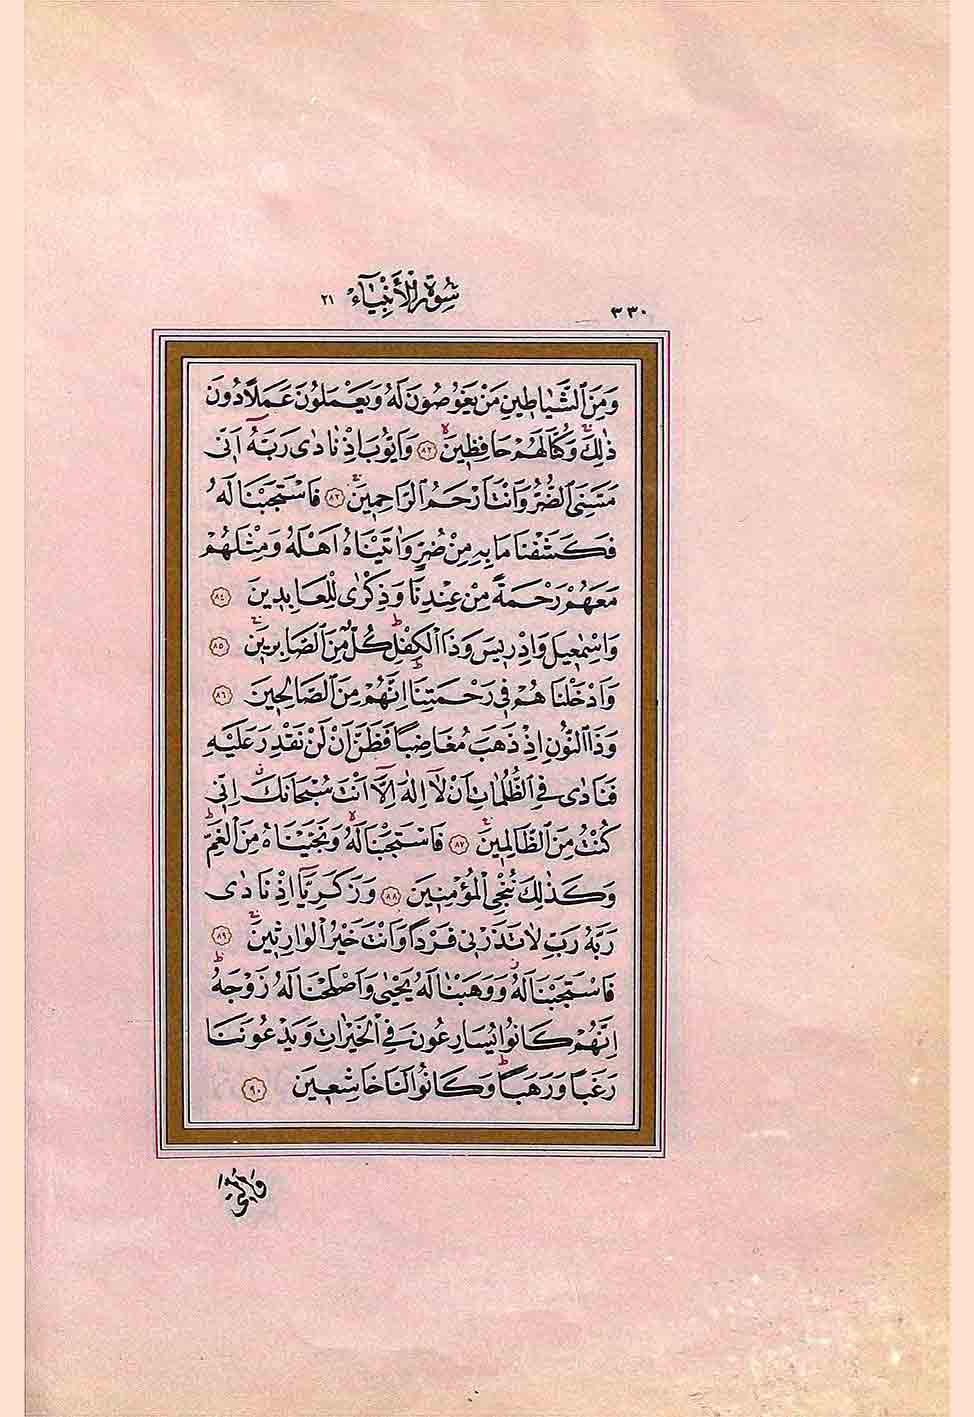 ٣٣٠
سُورَةُ الْأَنْبِيَاءِ ٢١
وَمِنَ الشَّيَاطِينِ مَنْ يَغُوصُونَ لَهُ وَيَعْمَلُونَ عَمَلًا دُونَ
ذٰلِكَ وَكُنَّا لَهُمْ حَافِظِينَ ﴿٨٢﴾ وَاَيُّوبَ اِذْ نَادٰى رَبَّهُٓ اَنِّى
مَسَّنِىَ الضُّرُّ وَاَنْتَ اَرْحَمُ الرَّاحِمِينَ ﴿٨٣﴾ فَاسْتَجَبْنَا لَهُ
فَكَشَفْنَا مَا بِهِ مِنْ ضُرٍّ وَاٰتَيْنَاهُ اَهْلَهُ وَمِثْلَهُمْ
مَعَهُمْ رَحْمَةً مِنْ عِنْدِنَا وَذِكْرٰى لِلْعَابِدِينَ ﴿٨٤﴾
وَاِسْمٰعِيلَ وَاِدْرِيسَ وَذَا الْكِفْلِ كُلٌّ مِنَ الصَّابِرِينَ ﴿٨٥﴾
وَاَدْخَلْنَاهُمْ فِى رَحْمَتِنَا اِنَّهُمْ مِنَ الصَّالِحِينَ ﴿٨٦﴾
وَذَا النُّونِ اِذْ ذَهَبَ مُغَاضِبًا فَظَنَّ اَنْ لَنْ نَقْدِرَ عَلَيْهِ
فَنَادٰى فِى الظُّلُمَاتِ اَنْ لَٓا اِلٰهَ اِلَّٓا اَنْتَ سُبْحَانَكَ اِنِّى
كُنْتُ مِنَ الظَّالِمِينَ ﴿٨٧﴾ فَاسْتَجَبْنَا لَهُ وَنَجَّيْنَاهُ مِنَ الْغَمِّ
وَكَذٰلِكَ نُنْجِى الْمُؤْمِنِينَ ﴿٨٨﴾ وَزَكَرِيَّٓا اِذْ نَادٰى
رَبَّهُ رَبِّ لَا تَذَرْنِى فَرْدًا وَاَنْتَ خَيْرُ الْوَارِثِينَ ﴿٨٩﴾
فَاسْتَجَبْنَا لَهُ وَوَهَبْنَا لَهُ يَحْيٰى وَاَصْلَحْنَا لَهُ زَوْجَهُ
اِنَّهُمْ كَانُوا يُسَارِعُونَ فِى الْخَيْرَاتِ وَيَدْعُونَنَا
رَغَبًا وَرَهَبًا وَكَانُوا لَنَا خَاشِعِينَ ﴿٩٠﴾
وَالَّتِى